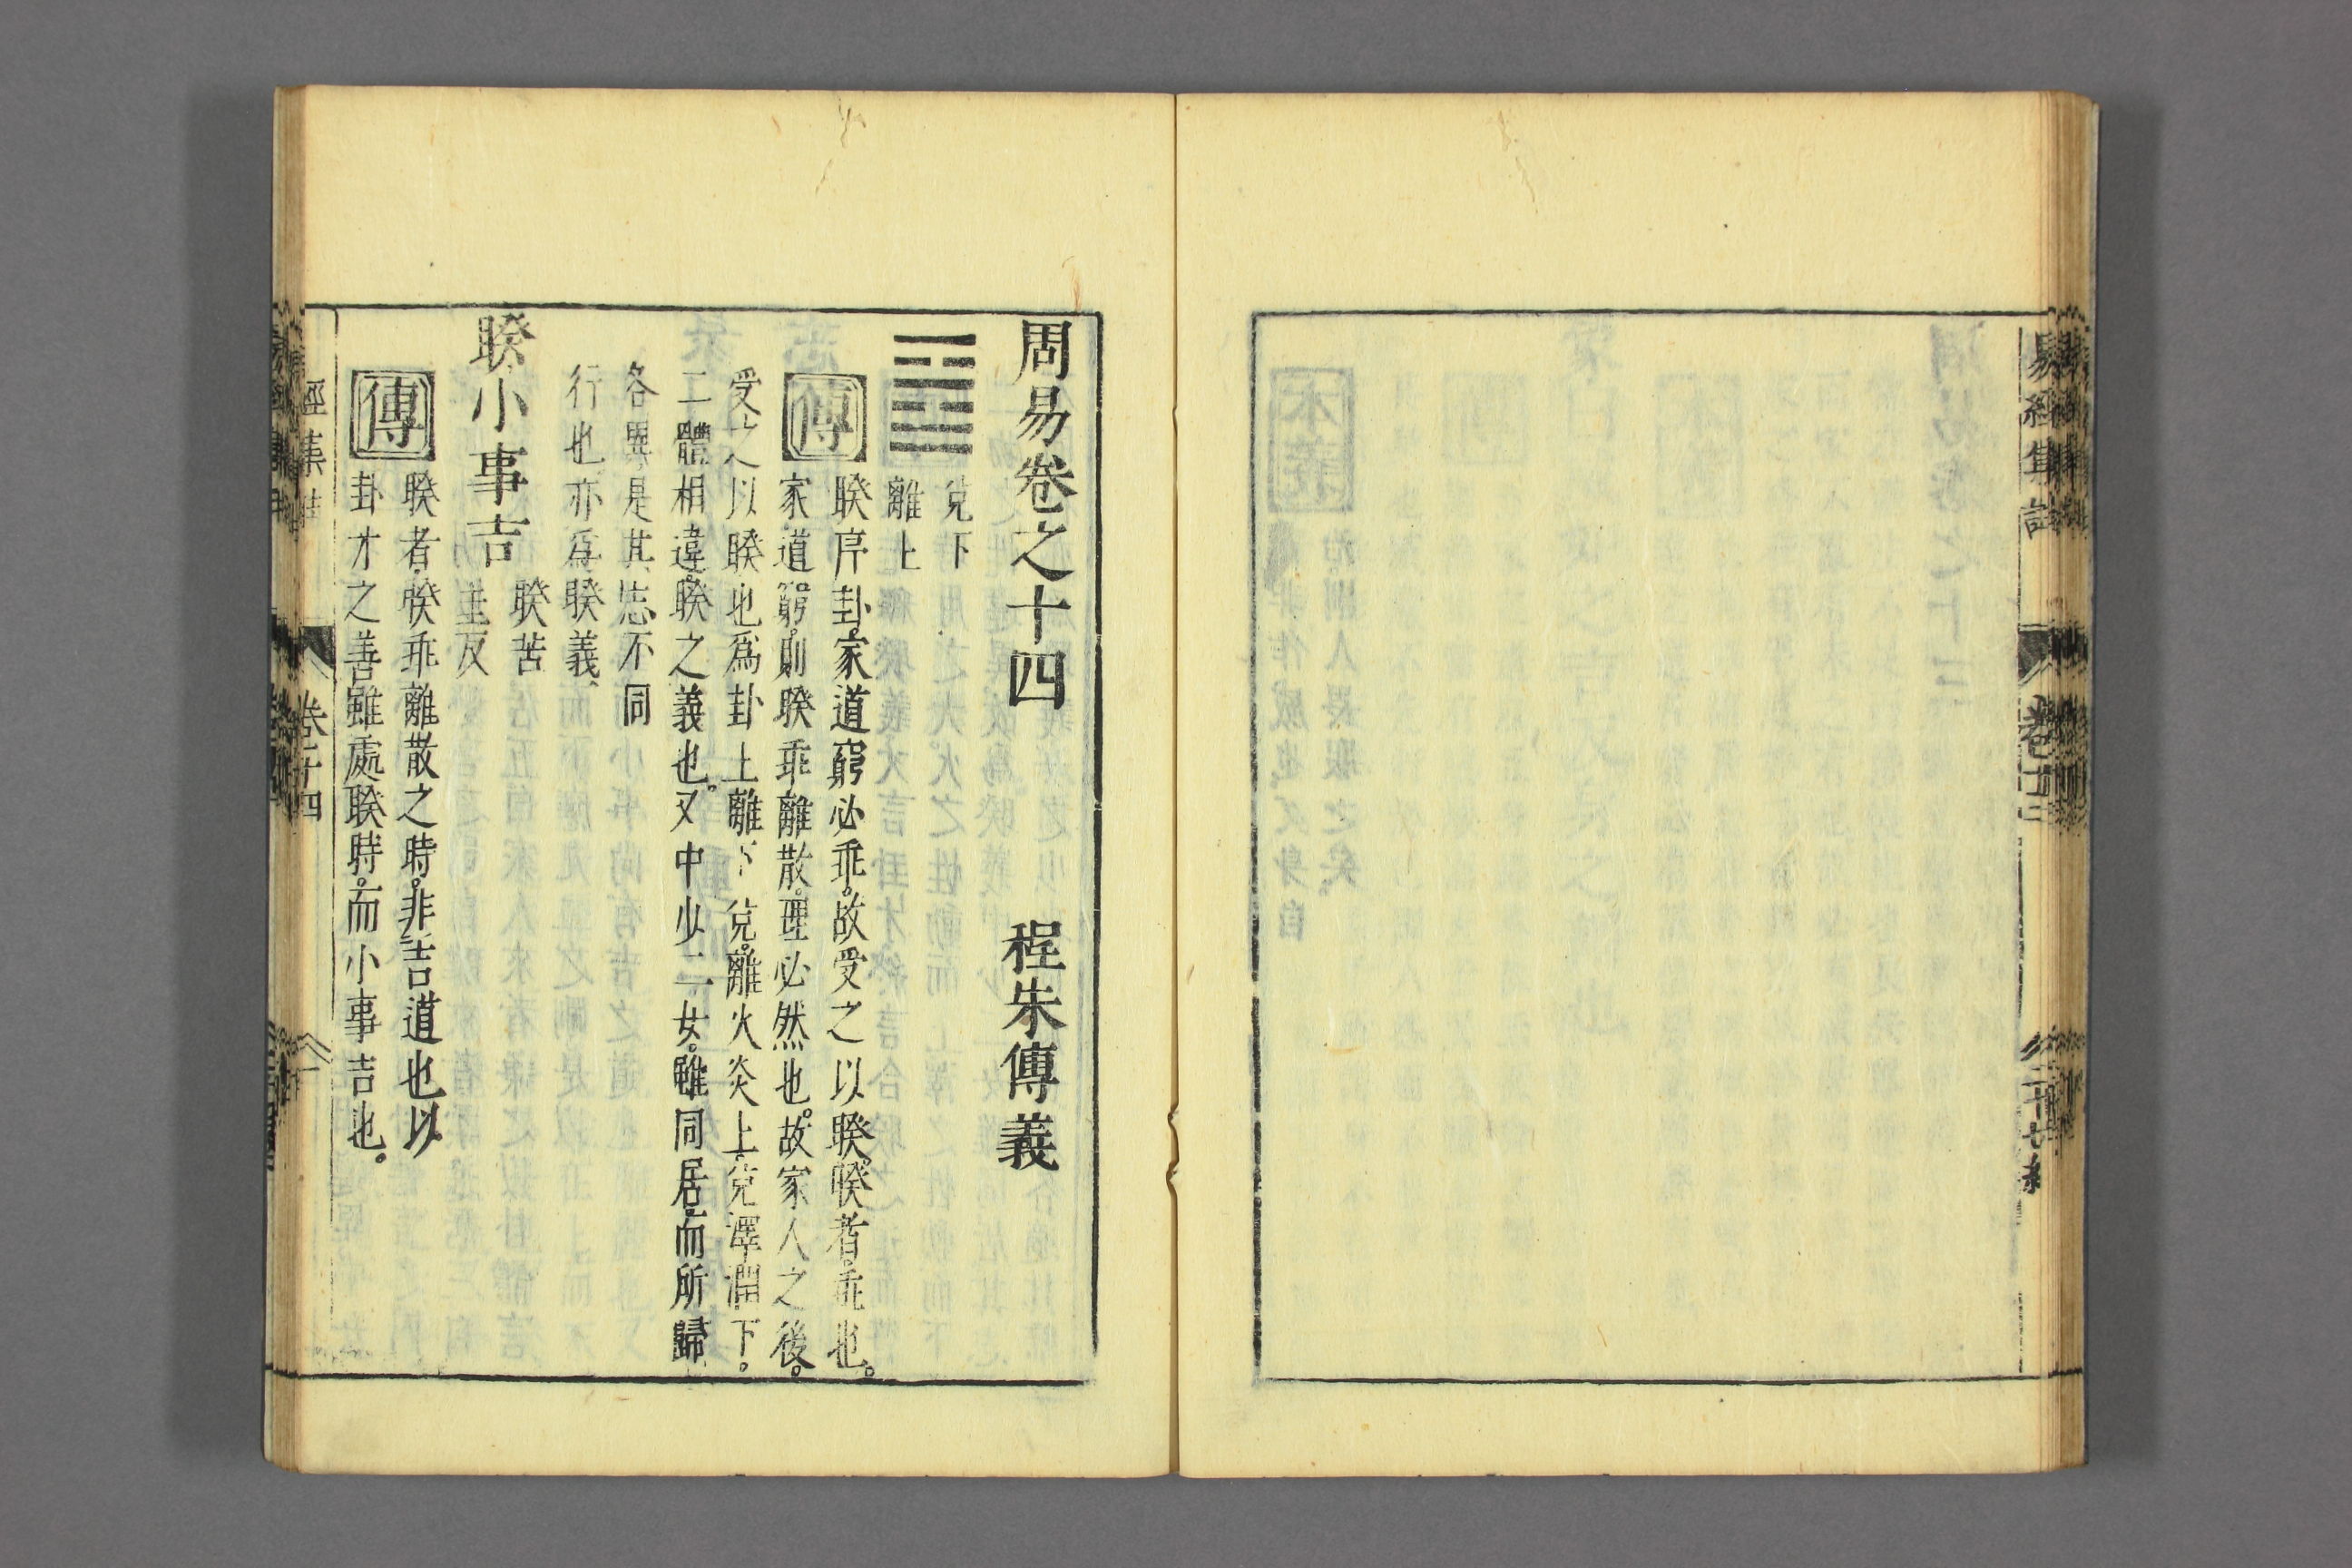 周易卷之十四 程朱傳義
兌下
離上
傳 睽序卦家道窮必乖故受之以睽睽者乖也
家道窮則睽乖離散理必然也故家人之後
受之以睽也爲卦上離下兌離火炎上兌澤潤下
二體相違睽之義也又中少二女雖同居而所歸
各異是其志不同
行也亦爲睽義
睽小事吉 睽苦
圭反
傳 睽者睽乖離散之時非吉道也以
卦才之善雖處睽時而小事吉也
卷十四
易經集註